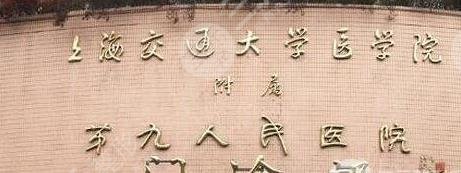 上海交通大学医学院
附属
第九人民医院